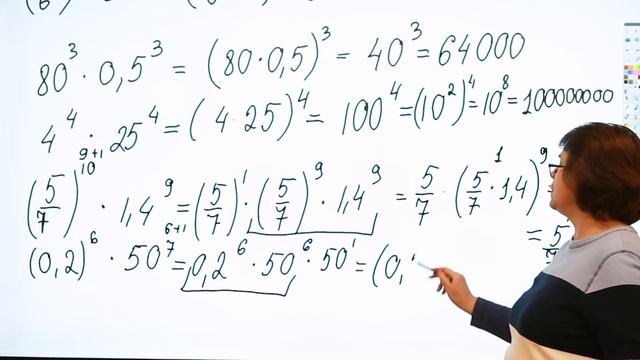 80³ · 0,5³ = (80 · 0,5)³ = 40³ = 64000
4⁴ · 25⁴ = (4 · 25)⁴ = 100⁴ = (10²)⁴ = 10⁸ = 100000000
9+1
(5/7)¹⁰ · 1,4⁹ = (5/7)¹ · (5/7)⁹ · 1,4⁹ = 5/7 · (5/7 · 1,4)⁹
1
= 5
6+1
(0,2)⁶ · 50⁷ = 0,2⁶ · 50⁶ · 50¹ = (0,